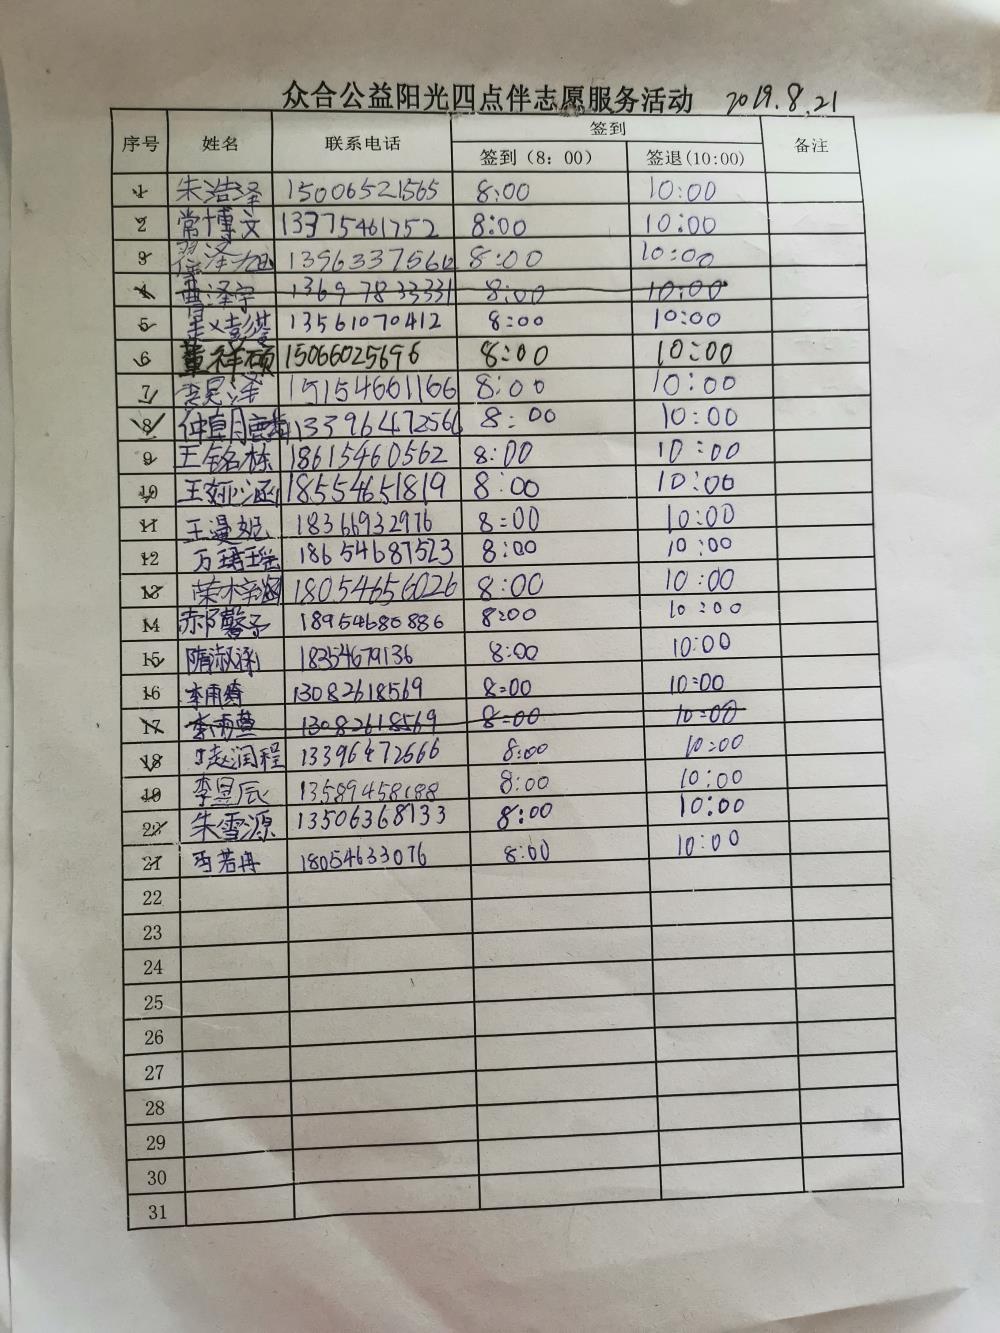 众合公益阳光四点伴志愿服务活动 2019.8.21
序号 姓名 联系电话 签到 备注
签到（8：00） 签退(10:00)
1 朱浩泽 15006521565 8:00 10:00
2 常博文 13375461752 8:00 10:00
3 泽旭 1396337566 8:00 10:00
4 曹泽宇 13697833331 8:00 10:00
5 13561070412 8:00 10:00
6 董祥硕 15066025696 8:00 10:00
7 李昊泽 15154661166 8:00 10:00
8 仲 13396472566 8:00 10:00
9 王铭栋 18615460562 8:00 10:00
10 王娅涵 18554651819 8:00 10:00
11 王漫妮 18366932976 8:00 10:00
12 万珺瑶 18654687523 8:00 10:00
13 荣梓涵 18054656026 8:00 10:00
14 郝馨予 18954680886 8:00 10:00
15 隋淑涵 18354679136 8:00 10:00
16 李雨绮 13082618569 8:00 10:00
17 李雨萱 13082618569 8:00 10:00
18 赵润程 13396472666 8:00 10:00
19 李昱辰 13589458188 8:00 10:00
20 朱雪源 13506368733 8:00 10:00
21 若冉 18054633076 8:00 10:00
22
23
24
25
26
27
28
29
30
31